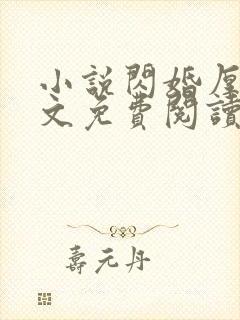 小說閃婚厚
文免費閱讀
壽元丹